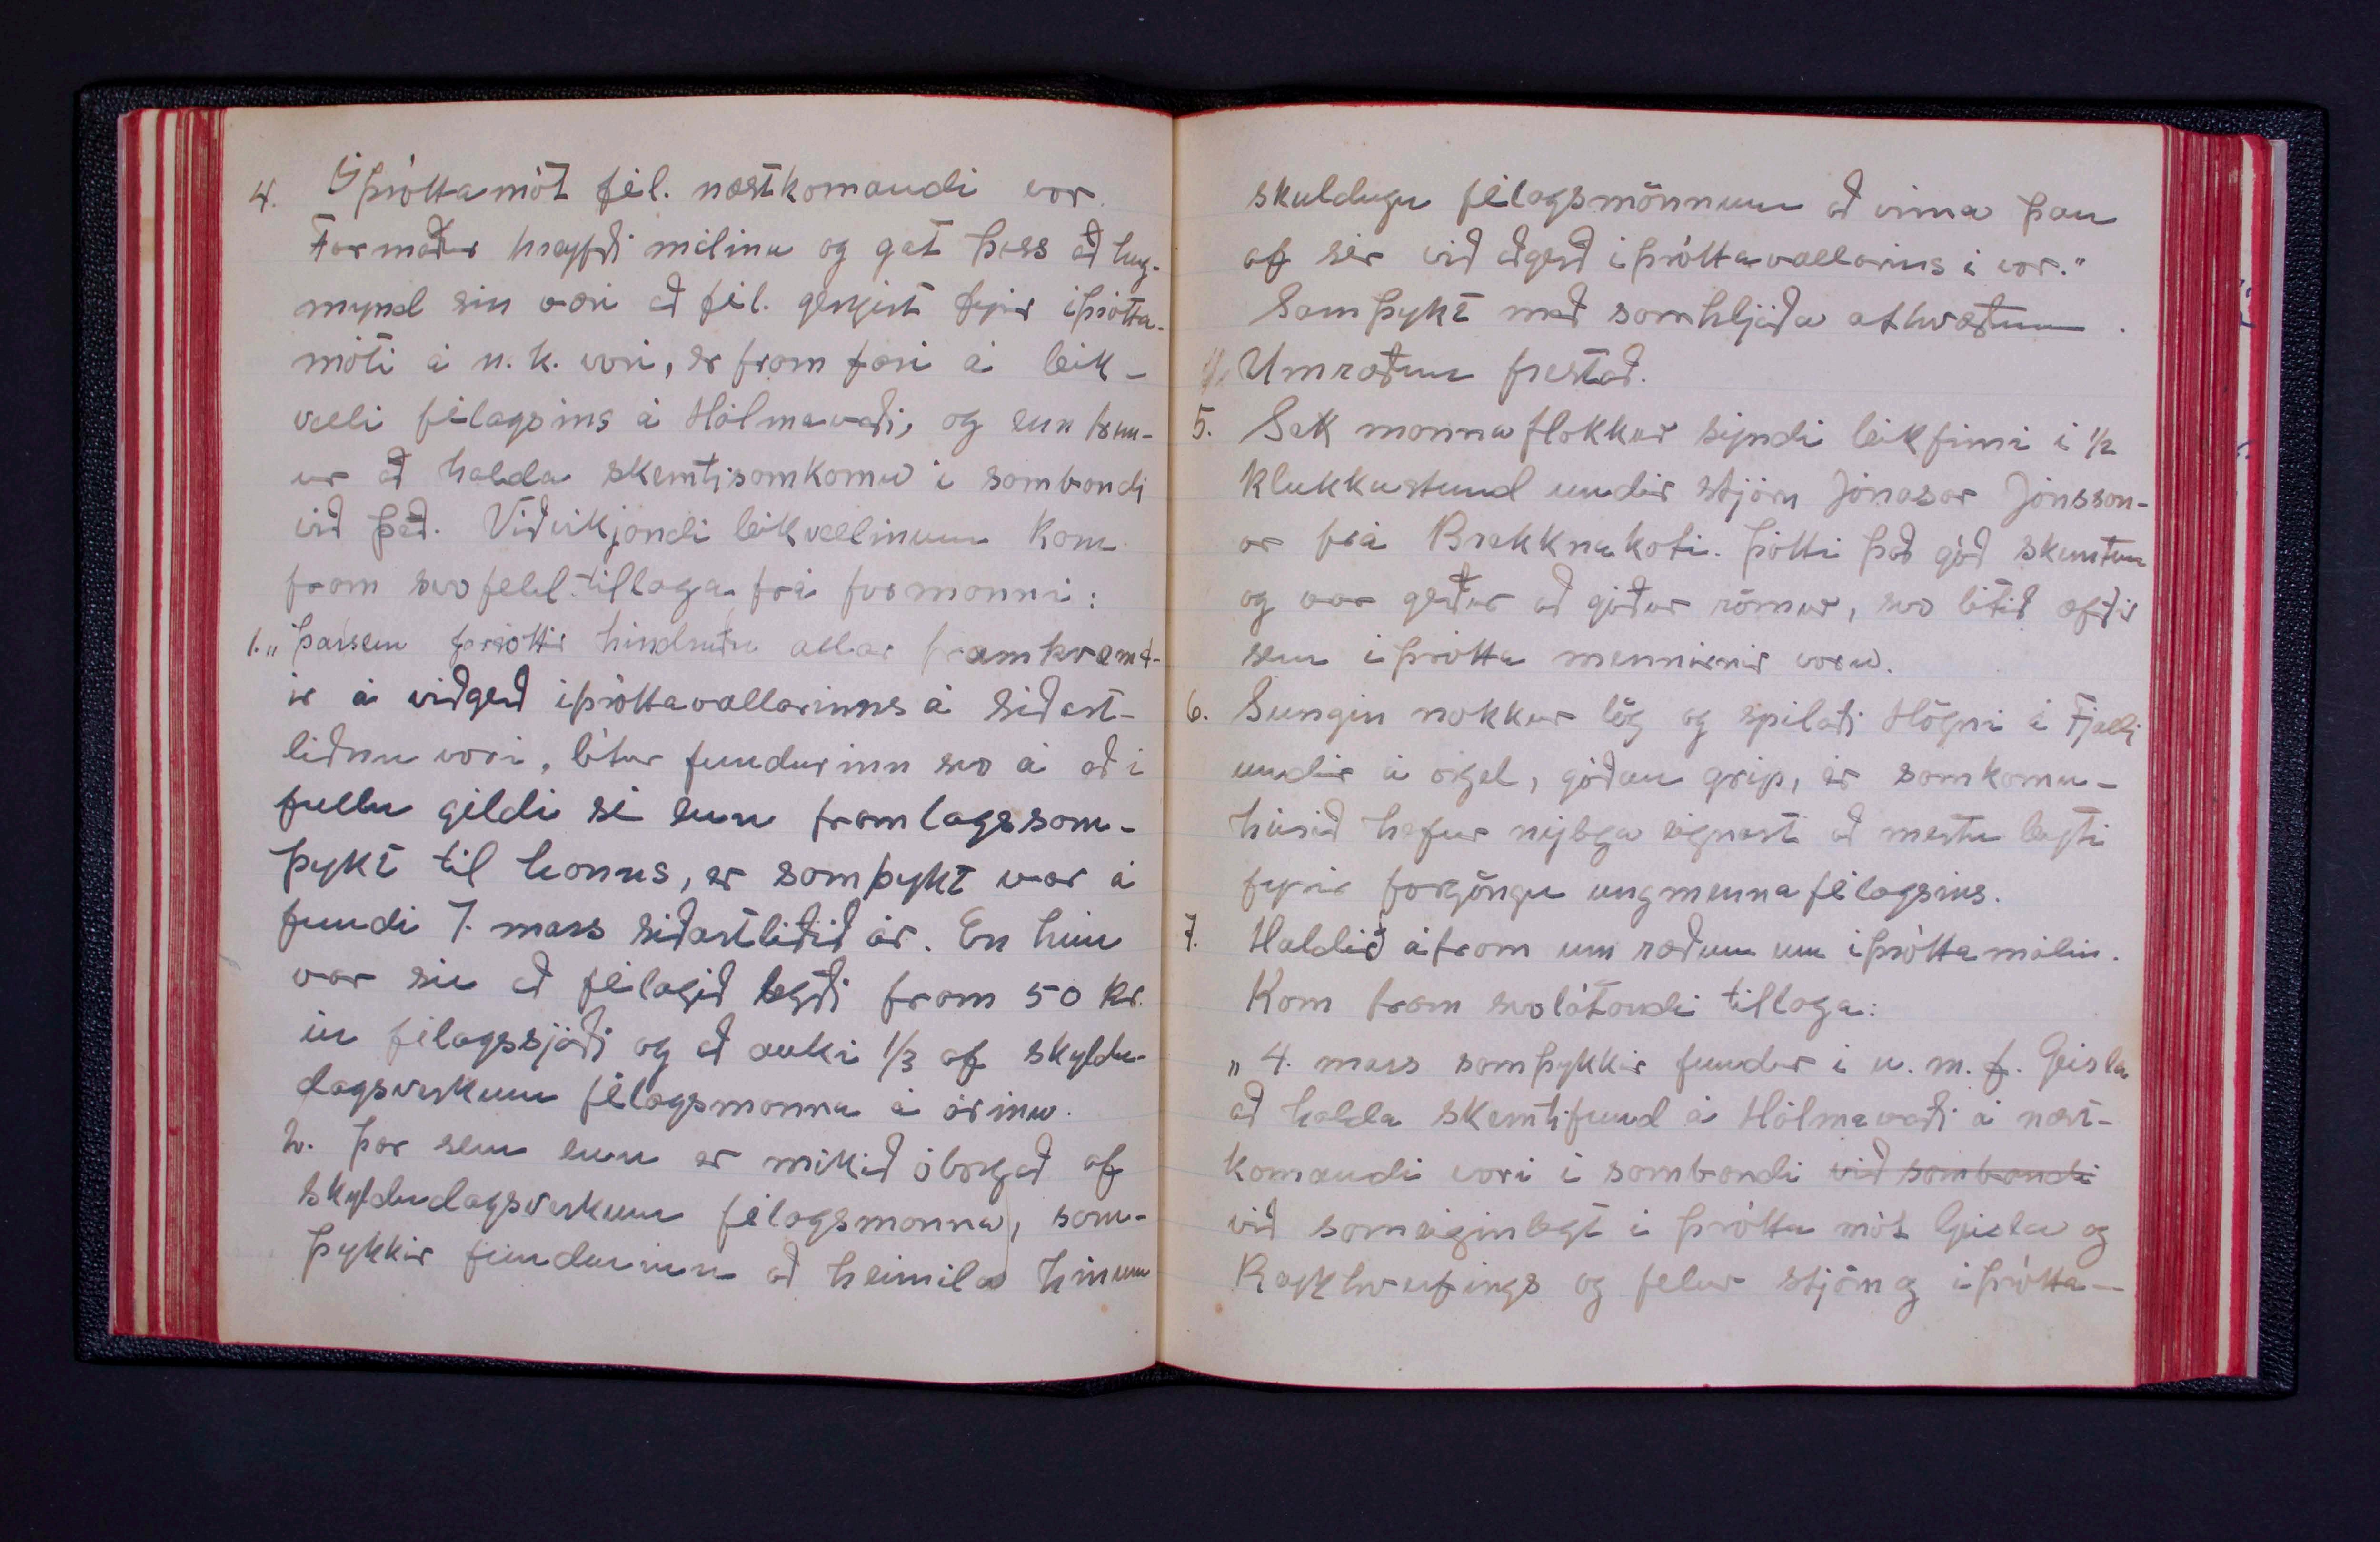 4. Íþróttamót fél. næstkomandi vor.
Formaður hreyfði málinu og gat þess að hug-
mynd sín væri að fél. gengist fyrir íþrótta-
móti á n.k. vori, er fram færi á leik-
velli félagsins á Hólmavaði, og enn frem-
ur að halda skemtisamkomu í sambandi
við það. Viðvíkjandi leikvellinum kom
fram svofeld tillaga frá formanni:
1. „Þarsem þrióttir hindruðu allar framkvæmd-
ir á viðgerð íþróttavallarinns á síðast-
liðnu vori, lítur fundurinn svo á að í
fullu gildi sé enn framlagssam-
þykt til hanns, er samþykt var á
fundi 7. mars síðastliðið ár. En hún
var sú að félagið legði fram 50 kr.
úr félagssjóði og að auki 1/3 af skyldu-
dagsverkum félagsmanna á árinu.
2. Þar sem enn er mikið óborgað af
skyldudagsverkum félagsmanna, sam-
þykkir fundurinn að heimila hinum
skuldugu félagsmönnum að vinna þau
af sér við aðgerð íþróttavallarins í vor."
Samþykt með samhljóða atkvæðum.
Umræðum frestað.
5. Sex mannaflokkur sýndi leikfimi í 1/2
klukkustund undir stjórn Jónasar Jónsson-
ar frá Brekknakoti. Þótti það góð skemtun
og var gerður að góður rómur, svo lítið æfðir
sem íþrótta mennirnir voru.
6. Sungin nokkur lög og spilaði Högni á Fjalli
undir á orgel, góðan grip, er samkomu-
húsið hefur nýlega eignast að mestu leyti
fyrir forgöngu ungmennafélagsins.
7. Haldið áfram um ræðum um íþróttamálin.
Kom fram svolátandi tillaga:
„4. mars samþykkir fundur í u.m.f. Geisla
að halda skemtifund á Hólmavaði á næst-
komandi vori í sambandi við sambandi
við sameiginlegt í þrótta mót Geisla og
Reykhverfings og felur stjórn og íþrótta-